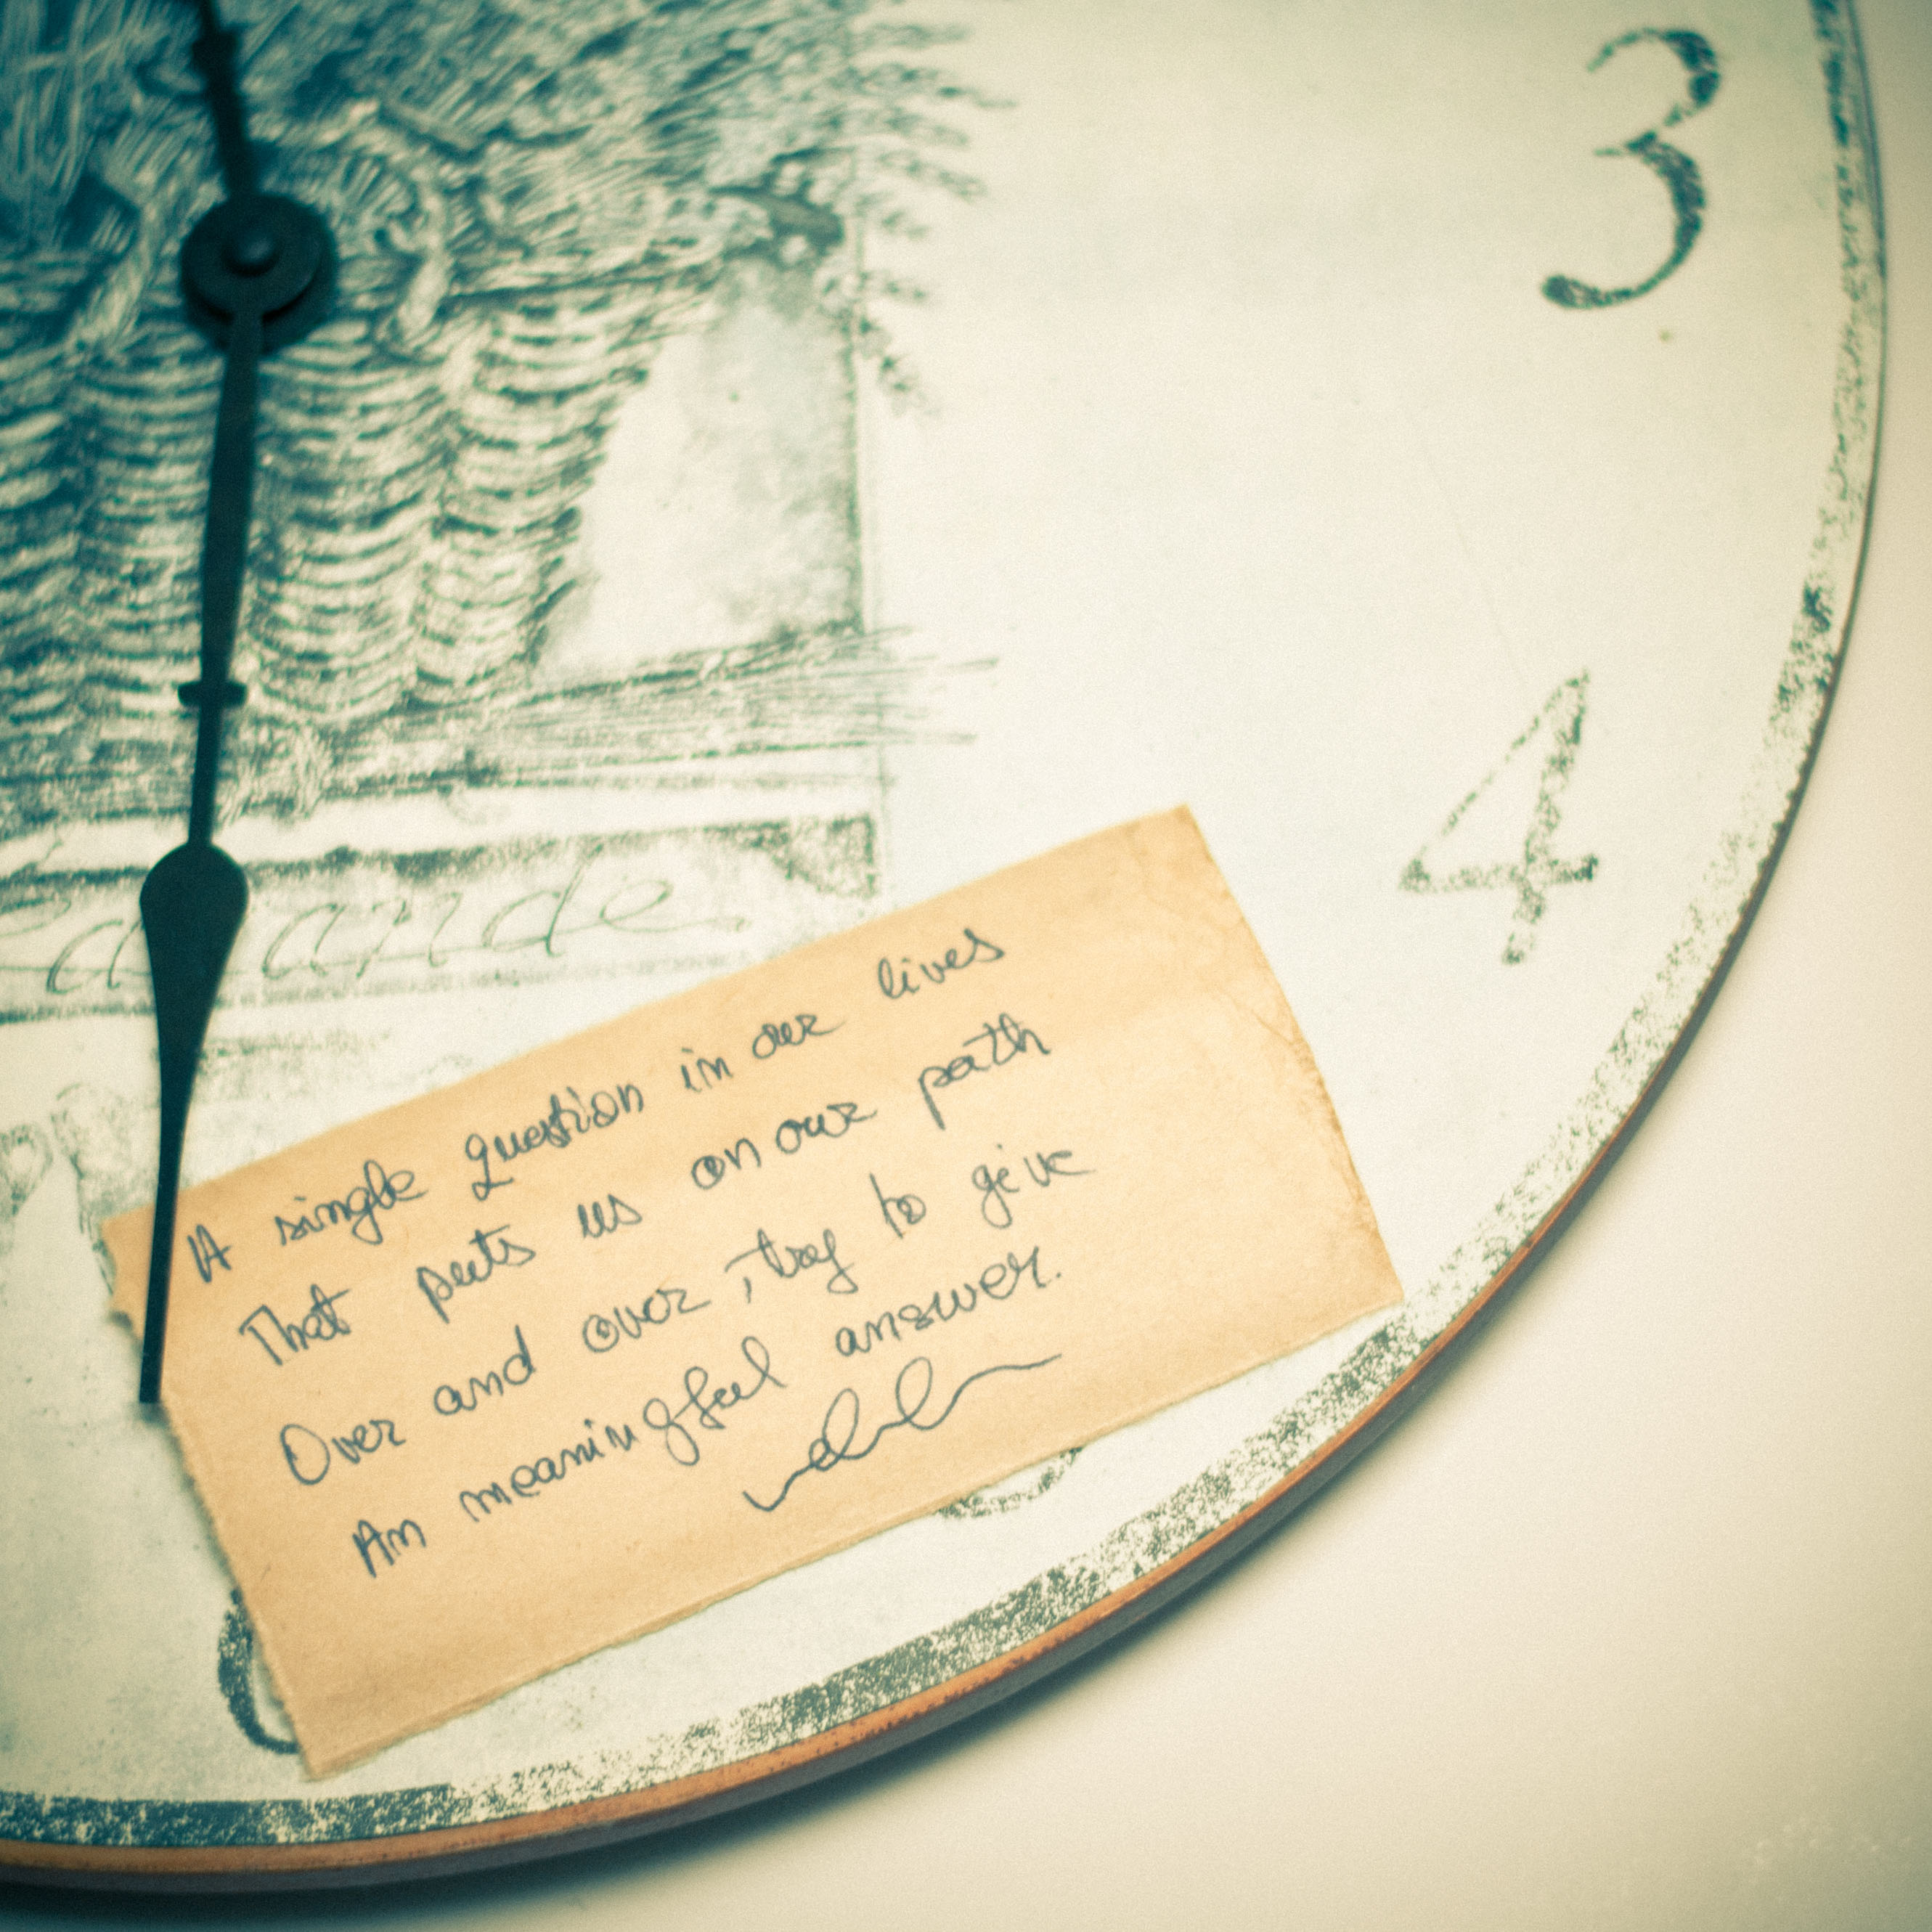 3
4
A single question in our lives
That puts us on our path
Over and over, try to give
An meaningful answer.